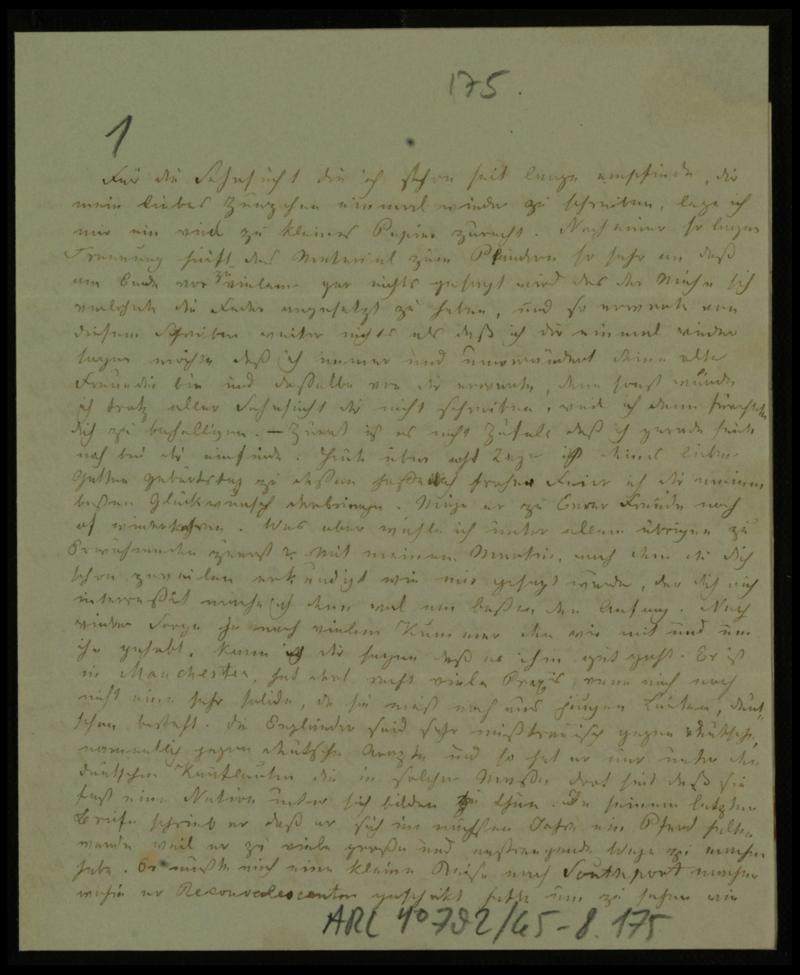 175.
1
Für die Sehnsucht die ich schon seit lange empfinde, dir
mein liebes einmal wieder zu schreiben, lege ich
mir ein viel zu kleines Papier zurecht. Nach einer so langen
Trennung häuft das Material zum Plaudern so sehr an daß
am Ende vor zu vielem gar nichts gesagt wird das der Mühe sich
verlohnte die Feder angesetzt zu haben, und so erwarte von
diesem Schreiben weiter nichts als daß ich dir einmal wieder
sagen möchte daß ich immer und unverändert deine alte
Freundin bin und dasselbe von dir erwarte, denn sonst würde
ich trotz aller Sehnsucht dir nicht schreiben, weil ich dann fürchtete
dich zu behelligen. — Zuerst ist es nicht Zufall daß ich gerade heute
mich bei dir einfinde. Heute über acht Tage ist deines lieben
Gatten Geburtstag zu dessen froher Feier ich dir meinen
besten Glückwunsch darbringe. Möge er zu Eurer Freude noch
oft wiederkehren. Was aber wähle ich unter allem übrigen zu
Erwähnenden zuerst? Mit meinem Moritz, nach dem du dich
schon zuweilen erkundigt wie mir gesagt wurde, der dich auch
interessirt mache ich denn wol am besten den Anfang. Nach
vieler Sorge ja nach vielem Kummer den wir mit und um
ihn gehabt, kann ich dir sagen daß es ihm gut geht. Er ist
in Manchester, hat dort recht viele Praxis, wenn auch noch
nicht eine sehr solide, da sie meist noch aus jungen Leuten, deut-
schen besteht. Die Engländer sind sehr mißtrauisch gegen deutsche,
namentlich gegen deutsche Aerzte und so hat er nur unter den
deutschen Kaufleuten die in solcher Masse dort sind daß sie
fast eine Nation unter sich bilden zu thun. In seinem letzten
Briefe schrieb er daß er sich im nächsten Jahr ein Pferd halten
werde weil er zu viele große und anstrengende Wege zu machen
habe. Er mußte auch eine kleine Reise nach Southport machen
wohin er Reconvalescenten geschickt hatte um zu sehen wie
ARC 40792/65-8.175